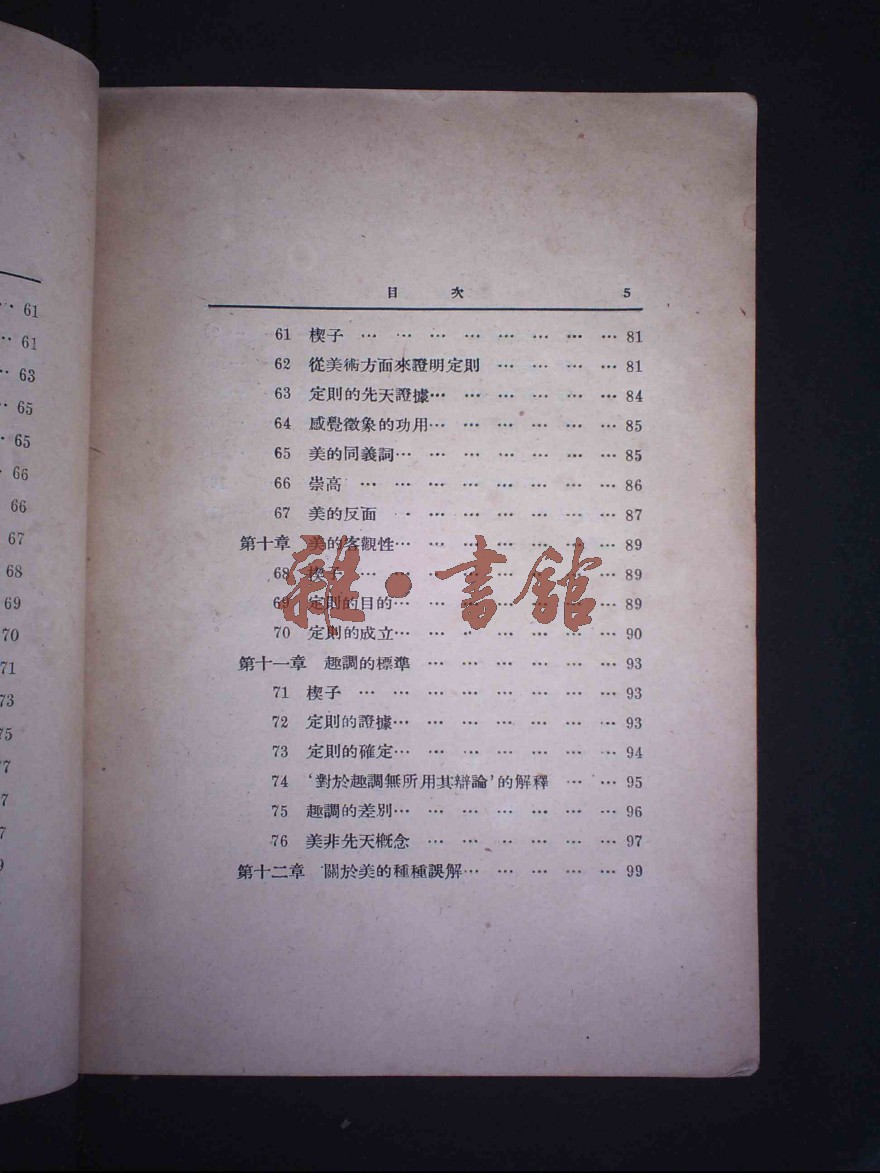 61
61
63
65
65
66
66
67
68
69
70
71
73
75
77
目 次 5
61 楔子 … … … … … … … … 81
62 從美術方面來證明定則 … … … … 81
63 定則的先天證據… … … … … … 84
64 感覺徵象的功用… … … … … … 85
65 美的同義詞… … … … … … … 85
66 崇高 … … … … … … … … 86
67 美的反面 … … … … … … … 87
第十章 美的客觀性… … … … … … … 89
68 楔子 … … … … … … … … 89
69 定則的目的… … … … … … … 89
70 定則的成立… … … … … … … 90
第十一章 趣調的標準 … … … … … … 93
71 楔子 … … … … … … … … 93
72 定則的證據… … … … … … … 93
73 定則的確定… … … … … … … 94
74 ‘對於趣調無所用其辯論’的解釋 … … 95
75 趣調的差別… … … … … … … 96
76 美非先天概念 … … … … … … 97
第十二章 關於美的種種誤解… … … … … 99
雜·書舘